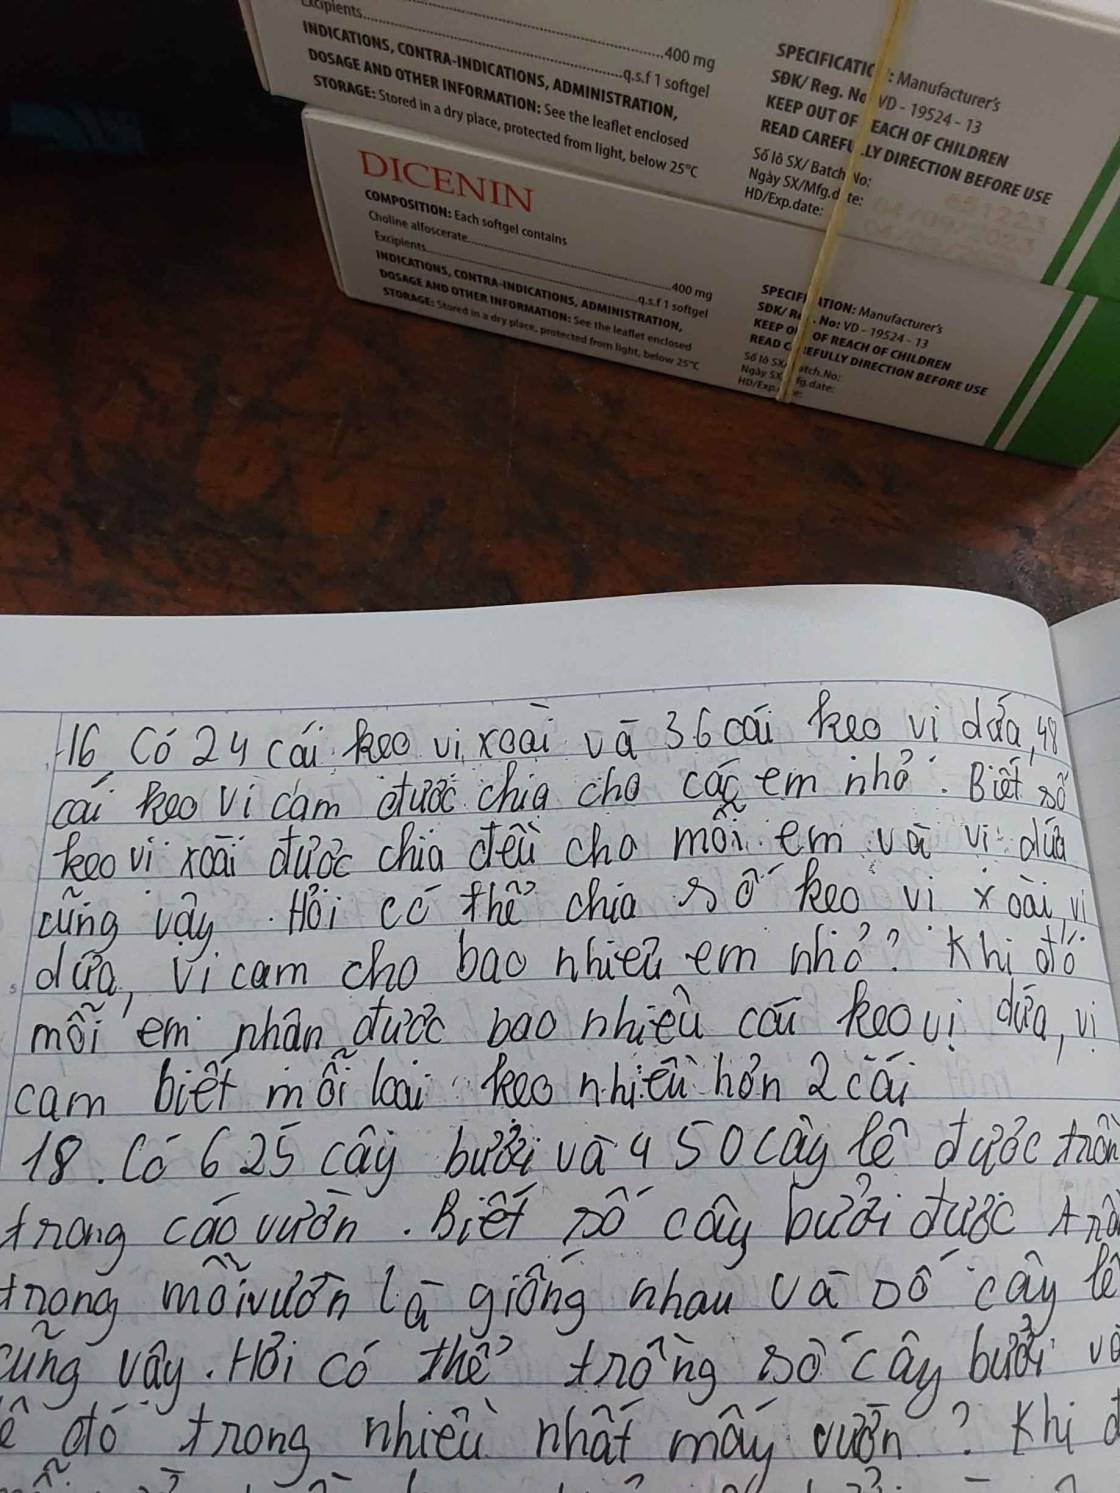 Excipients
400 mg
q.s.f 1 softgel
INDICATIONS, CONTRA-INDICATIONS, ADMINISTRATION,
DOSAGE AND OTHER INFORMATION: See the leaflet enclosed
STORAGE: Stored in a dry place, protected from light, below 25°C
SPECIFICATIC : Manufacturer's
SĐK/ Reg. No VD - 19524 - 13
KEEP OUT OF EACH OF CHILDREN
READ CAREFU LY DIRECTION BEFORE USE
Số lô SX/ Batch No:
Ngày SX/Mfg.d te:
HD/Exp.date:
651223
04/09/2023
DICENIN
COMPOSITION: Each softgel contains
Choline alfoscerate 400 mg
Excipients q.s.f 1 softgel
INDICATIONS, CONTRA-INDICATIONS, ADMINISTRATION,
DOSAGE AND OTHER INFORMATION: See the leaflet enclosed
STORAGE: Stored in a dry place, protected from light, below 25°C
SPECIF ATION: Manufacturer's
SĐK/ R . No: VD - 19524 - 13
KEEP O OF REACH OF CHILDREN
READ C EFULLY DIRECTION BEFORE USE
Số lô SX/ atch.No:
Ngày SX fg.date:
HD/Exp. e:
16 Có 24 cái kẹo vị xoài và 36 cái kẹo vị dứa, 48
cái kẹo vị cam được chia cho các em nhỏ. Biết số
kẹo vị xoài được chia đều cho mỗi em và vị dứa
cũng vậy. Hỏi có thể chia số kẹo vị xoài, vị
dứa, vị cam cho bao nhiêu em nhỏ? Khi đó
mỗi em nhận được bao nhiêu cái kẹo vị dứa, vị
cam biết mỗi loại kẹo nhiều hơn 2 cái
18. Có 625 cây bưởi và 450 cây lê được trồn
trong các vườn. Biết số cây bưởi được trồ
trong mỗi vườn là giống nhau và số cây lê
cũng vậy. Hỏi có thể trồng số cây bưởi và
lê đó trong nhiều nhất mấy vườn? Khi đ